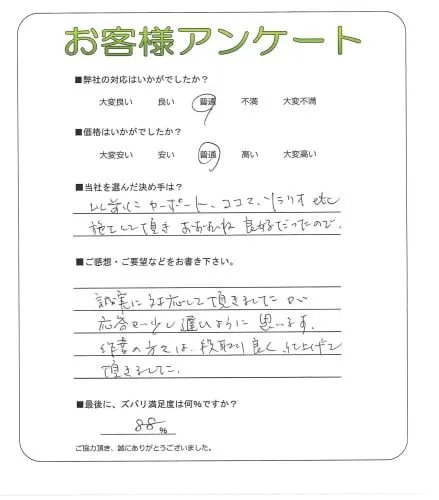 お客様アンケート
■弊社の対応はいかがでしたか？
大変良い 良い 普通 不満 大変不満
■価格はいかがでしたか？
大変安い 安い 普通 高い 大変高い
■当社を選んだ決め手は？
以前に カーポート、ココマ、ソラリオ etc
施工して頂き おおむね 良好だったので。
■ご感想・ご要望などをお書き下さい。
誠実に対応して頂きましたが
応答が少し遅いように思います。
作業の方々は、段取り良く、仕上げて
頂きました。
■最後に、ズバリ満足度は何％ですか？
88％
ご協力頂き、誠にありがとうございました。